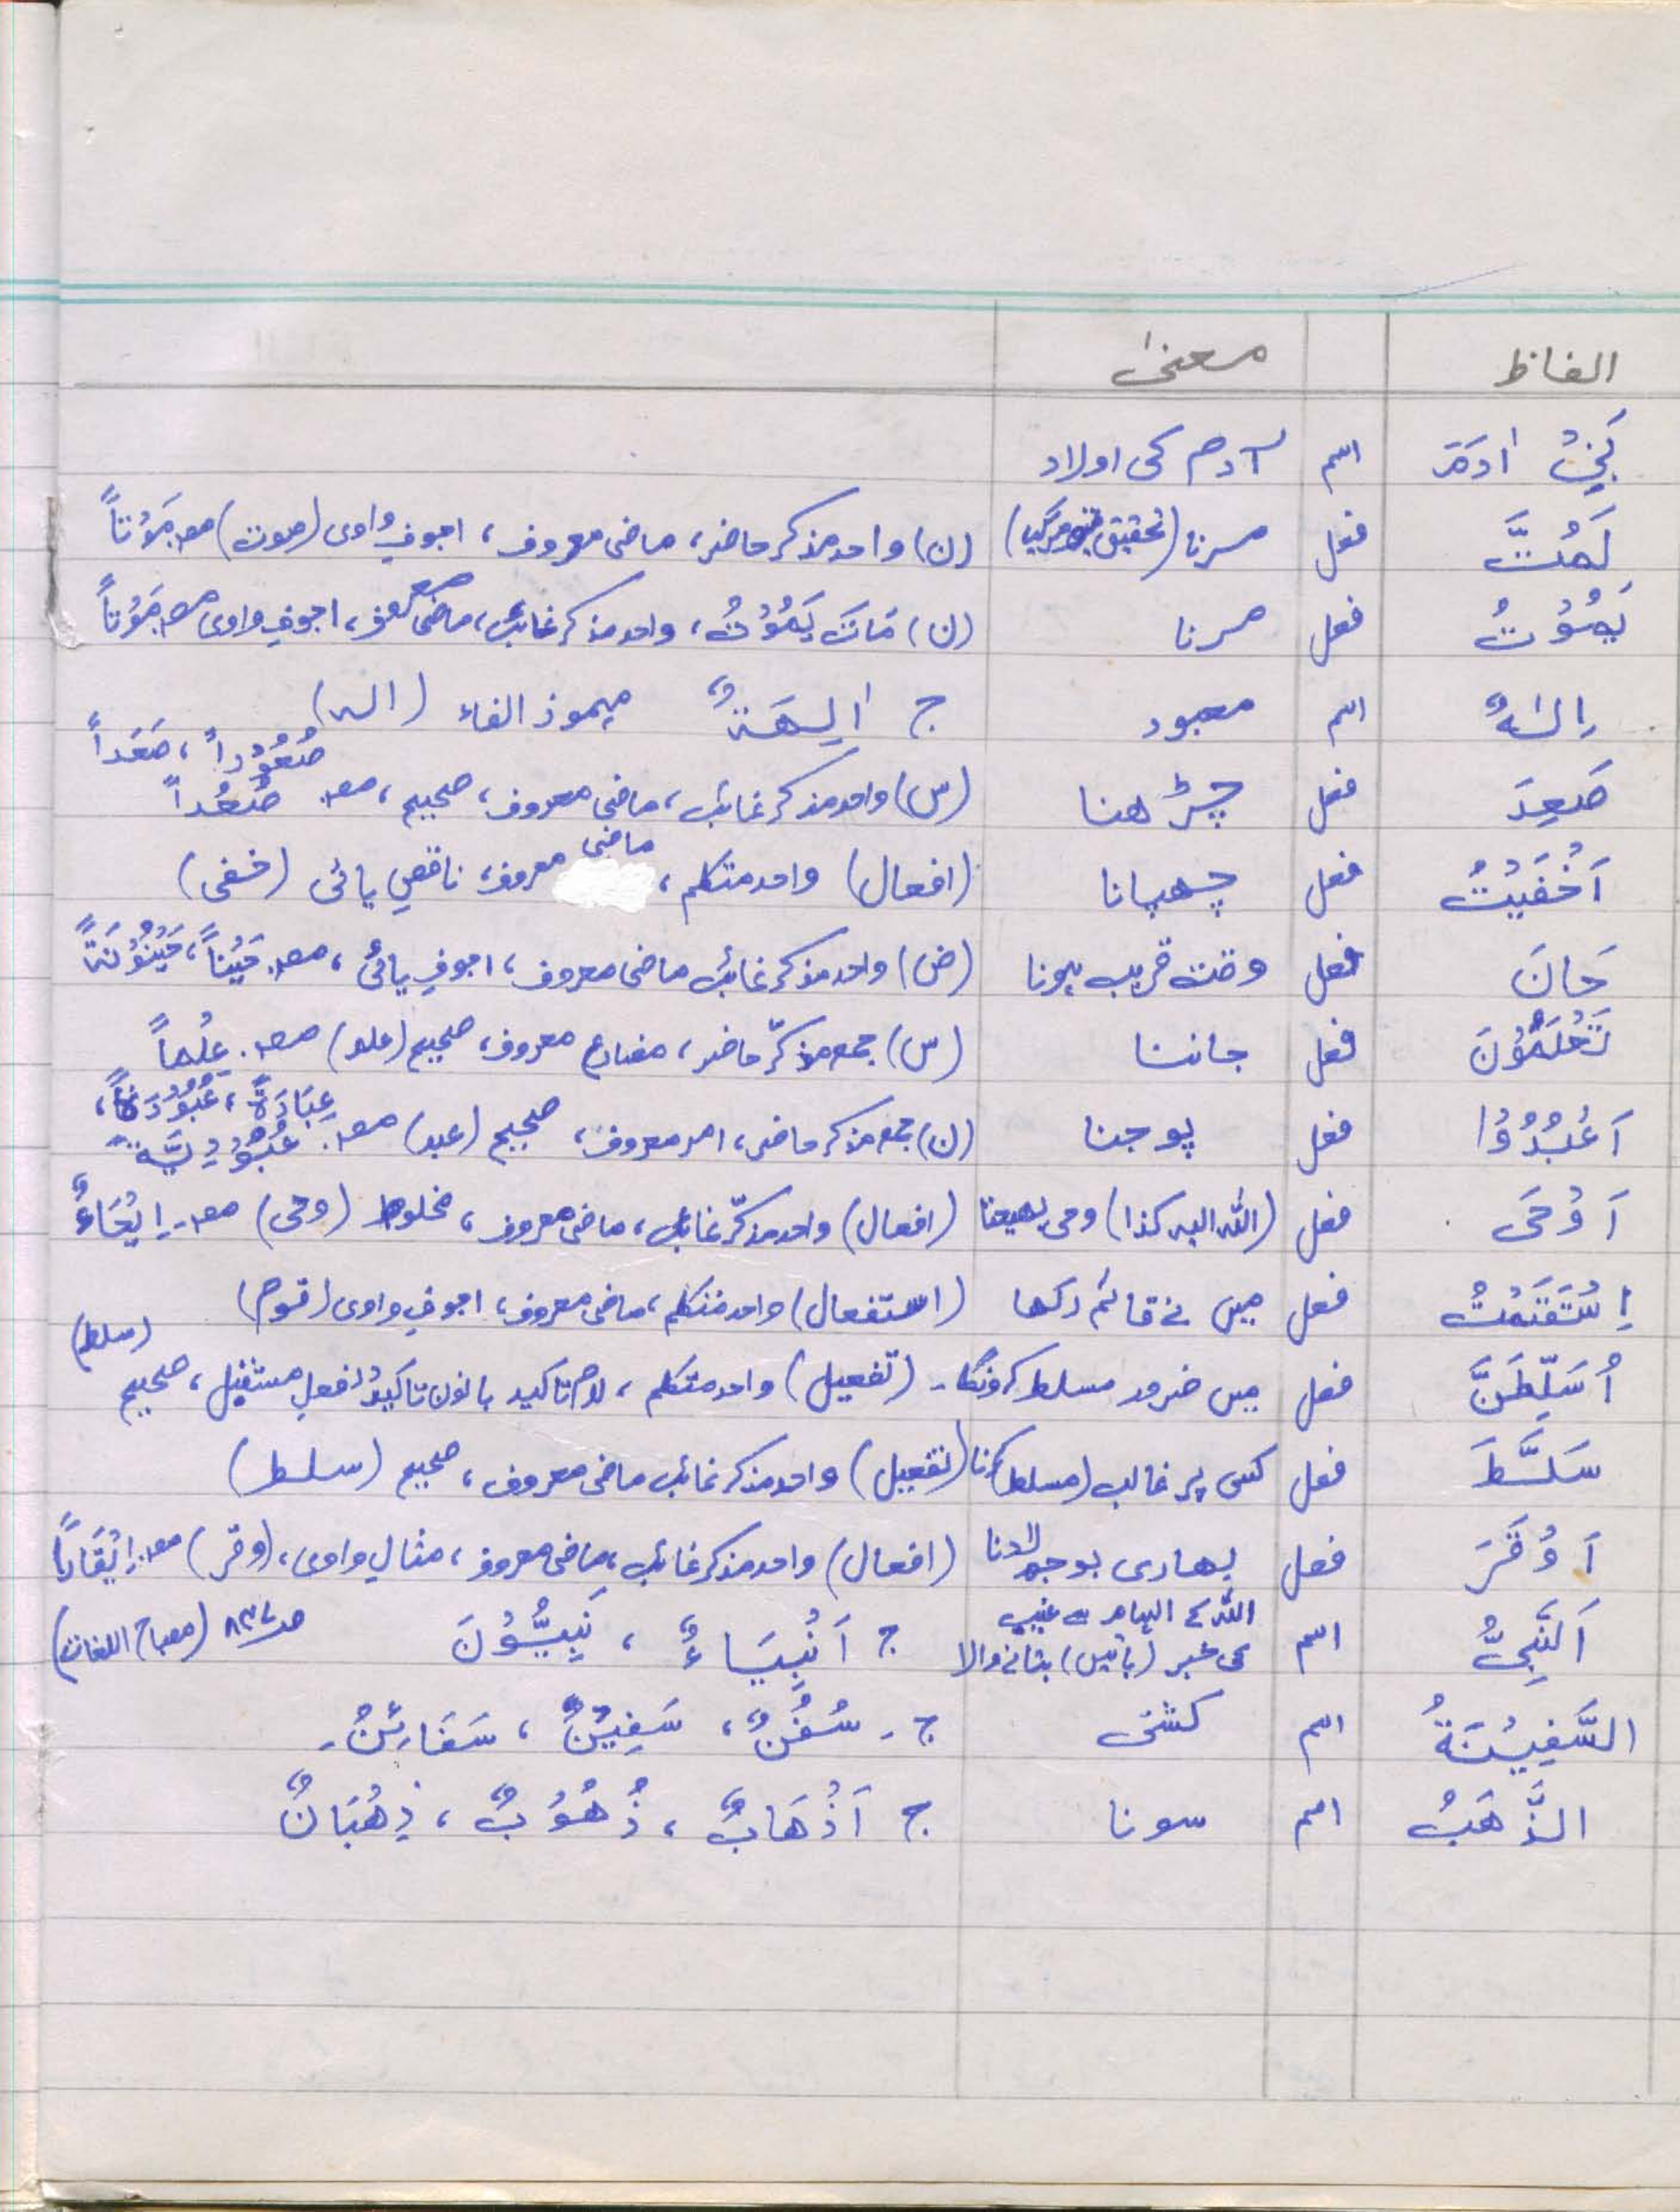 الفاظ معنیٰ
بَنِیْ اٰدَمَ اسم آدم کی اولاد
لَمُتَّ فعل مرنا (تحقیق مرگیا) (ن) واحد مذکر حاضر، ماضی معروف، اجوفِ واوی (موت) مصـ مَوْتاً
یَمُوْتُ فعل مرنا (ن) مَاتَ یَمُوْتُ، واحد مذکر غائب، ماضی معروف، اجوفِ واوی مصـ مَوْتاً
اِلٰہٌ اسم معبود ج اٰلِھَۃٌ مہموز الفاء (الہ)
صَعِدَ فعل چڑھنا (س) واحد مذکر غائب، ماضی معروف، صحیح، مصـ صُعُداً صُعُوْداً، صَعَداً
اَخْفَیْتُ فعل چھپانا (افعال) واحد متکلم، ماضی معروف، ناقصِ یائی (خفی)
حَانَ فعل وقت قریب ہونا (ض) واحد مذکر غائب ماضی معروف، اجوفِ یائی، مصـ حَیْناً، حَیْنُوْنَۃً
تَعْلَمُوْنَ فعل جاننا (س) جمع مذکّر حاضر، مضارع معروف، صحیح (علم) مصـ۔ عِلْماً
اَعْبُدُوْا فعل پوجنا (ن) جمع مذکر حاضر، امر معروف، صحیح (عبد) مصـ۔ عِبَادَۃً، عُبُوْدَۃً، عُبُوْدِیَّۃً
اَوْحَی فعل (اللہ الیہ کذا) وحی بھیجنا (افعال) واحد مذکّر غائب، ماضی معروف، مخلوط (وحی) مصـ۔ اِیْحَاءٌ
اِسْتَقَمْتُ فعل میں نے قائم رکھا (استفعال) واحد متکلم، ماضی معروف، اجوفِ واوی (قوم)
اُسَلِّطَنَّ فعل میں ضرور مسلط کرونگا۔ (تفعیل) واحد متکلم، لام تاکید بانون تاکید در فعلِ مستقبل، صحیح (سلط)
سَلَّطَ فعل کسی پر غالب (مسلط) کرنا (تفعیل) واحد مذکر غائب ماضی معروف، صحیح (سلط)
اَوْقَرَ فعل بھاری بوجھ لادنا (افعال) واحد مذکر غائب، ماضی معروف، مثالِ واوی، (وقر) مصـ۔ اِیْقَاراً
اَلنَّبِیُّ اسم اللہ کے الہام سے غیب کی خبر (باتیں) بتانے والا ج اَنْبِیَاءٌ، نَبِیُّوْنَ (مصباح اللغات)
السَّفِیْنَۃُ اسم کشتی ج۔ سُفُنٌ، سَفِیْنٌ، سَفَائِنُ۔
الذَّھَبُ اسم سونا ج اَذْھَابٌ، ذُھُوْبٌ، ذِھْبَانٌ